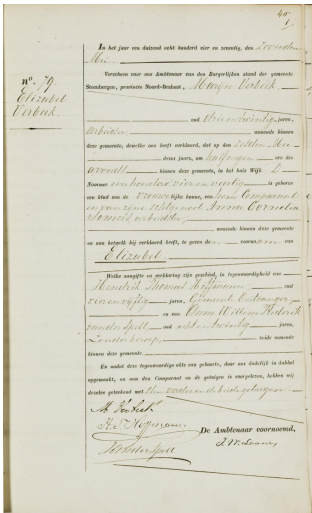 In het jaar een duizend acht honderd vier en zeventig, den zevenden
Mei
Verscheen voor ons Ambtenaar van den Burgerlijken stand der gemeente
Steenbergen, provincie Noord-Brabant, Marijn Verbeek
no. 79
Elizabet
Verbeek
oud drie en twintig jaren,
arbeider wonende binnen
deze gemeente, dewelke ons heeft verklaard, dat op den zesden Mei
dezes jaars, om half ure des
avonds binnen deze gemeente, in het huis Wijk D
Nommer een honderd vier en veertig is geboren
een kind van de vrouwelijke kunne, van hem Comparant
en van zijne echtgenoot Anna Cornelia
arbeidster,
wonende binnen deze gemeente
en aan hetwelk hij verklaard heeft, te geven den voornaam van
Elizabet
Welke aangifte en verklaring zijn geschied, in tegenwoordigheid van
Hendrik Thomas Hoffmann oud
vier en vijftig jaren, Gemeente Ontvanger,
en van Willem Frederik
van der Spelt oud acht en twintig jaren,
Zonder beroep, beide wonende
binnen deze gemeente
En nadat deze tegenwoordige akte van geboorte, daar van dadelijk in dubbel
opgemaakt, en aan den Comparant en de getuigen is voorgelezen, hebben wij
dezelve geteekend met den vader en de beide getuigen
M Verbeek
H. T. Hoffmann
De Ambtenaar voornoemd,